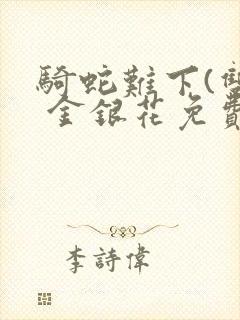 騎蛇難下(雙
金銀花免費
李詩偉